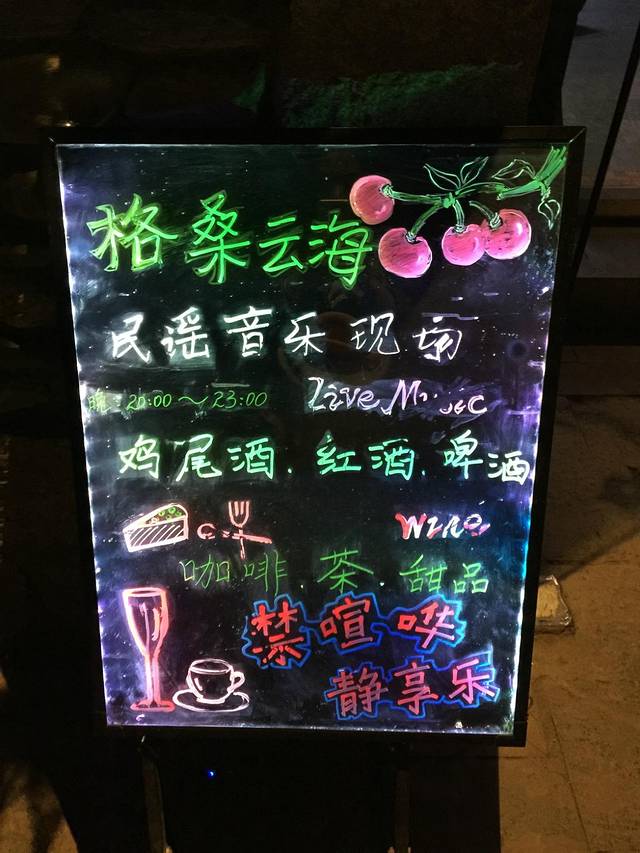 格桑云海
民谣音乐现场
晚:20:00～23:00 Live Music
鸡尾酒.红酒.啤酒
Wine
咖啡.茶.甜品
禁喧哗
静享乐